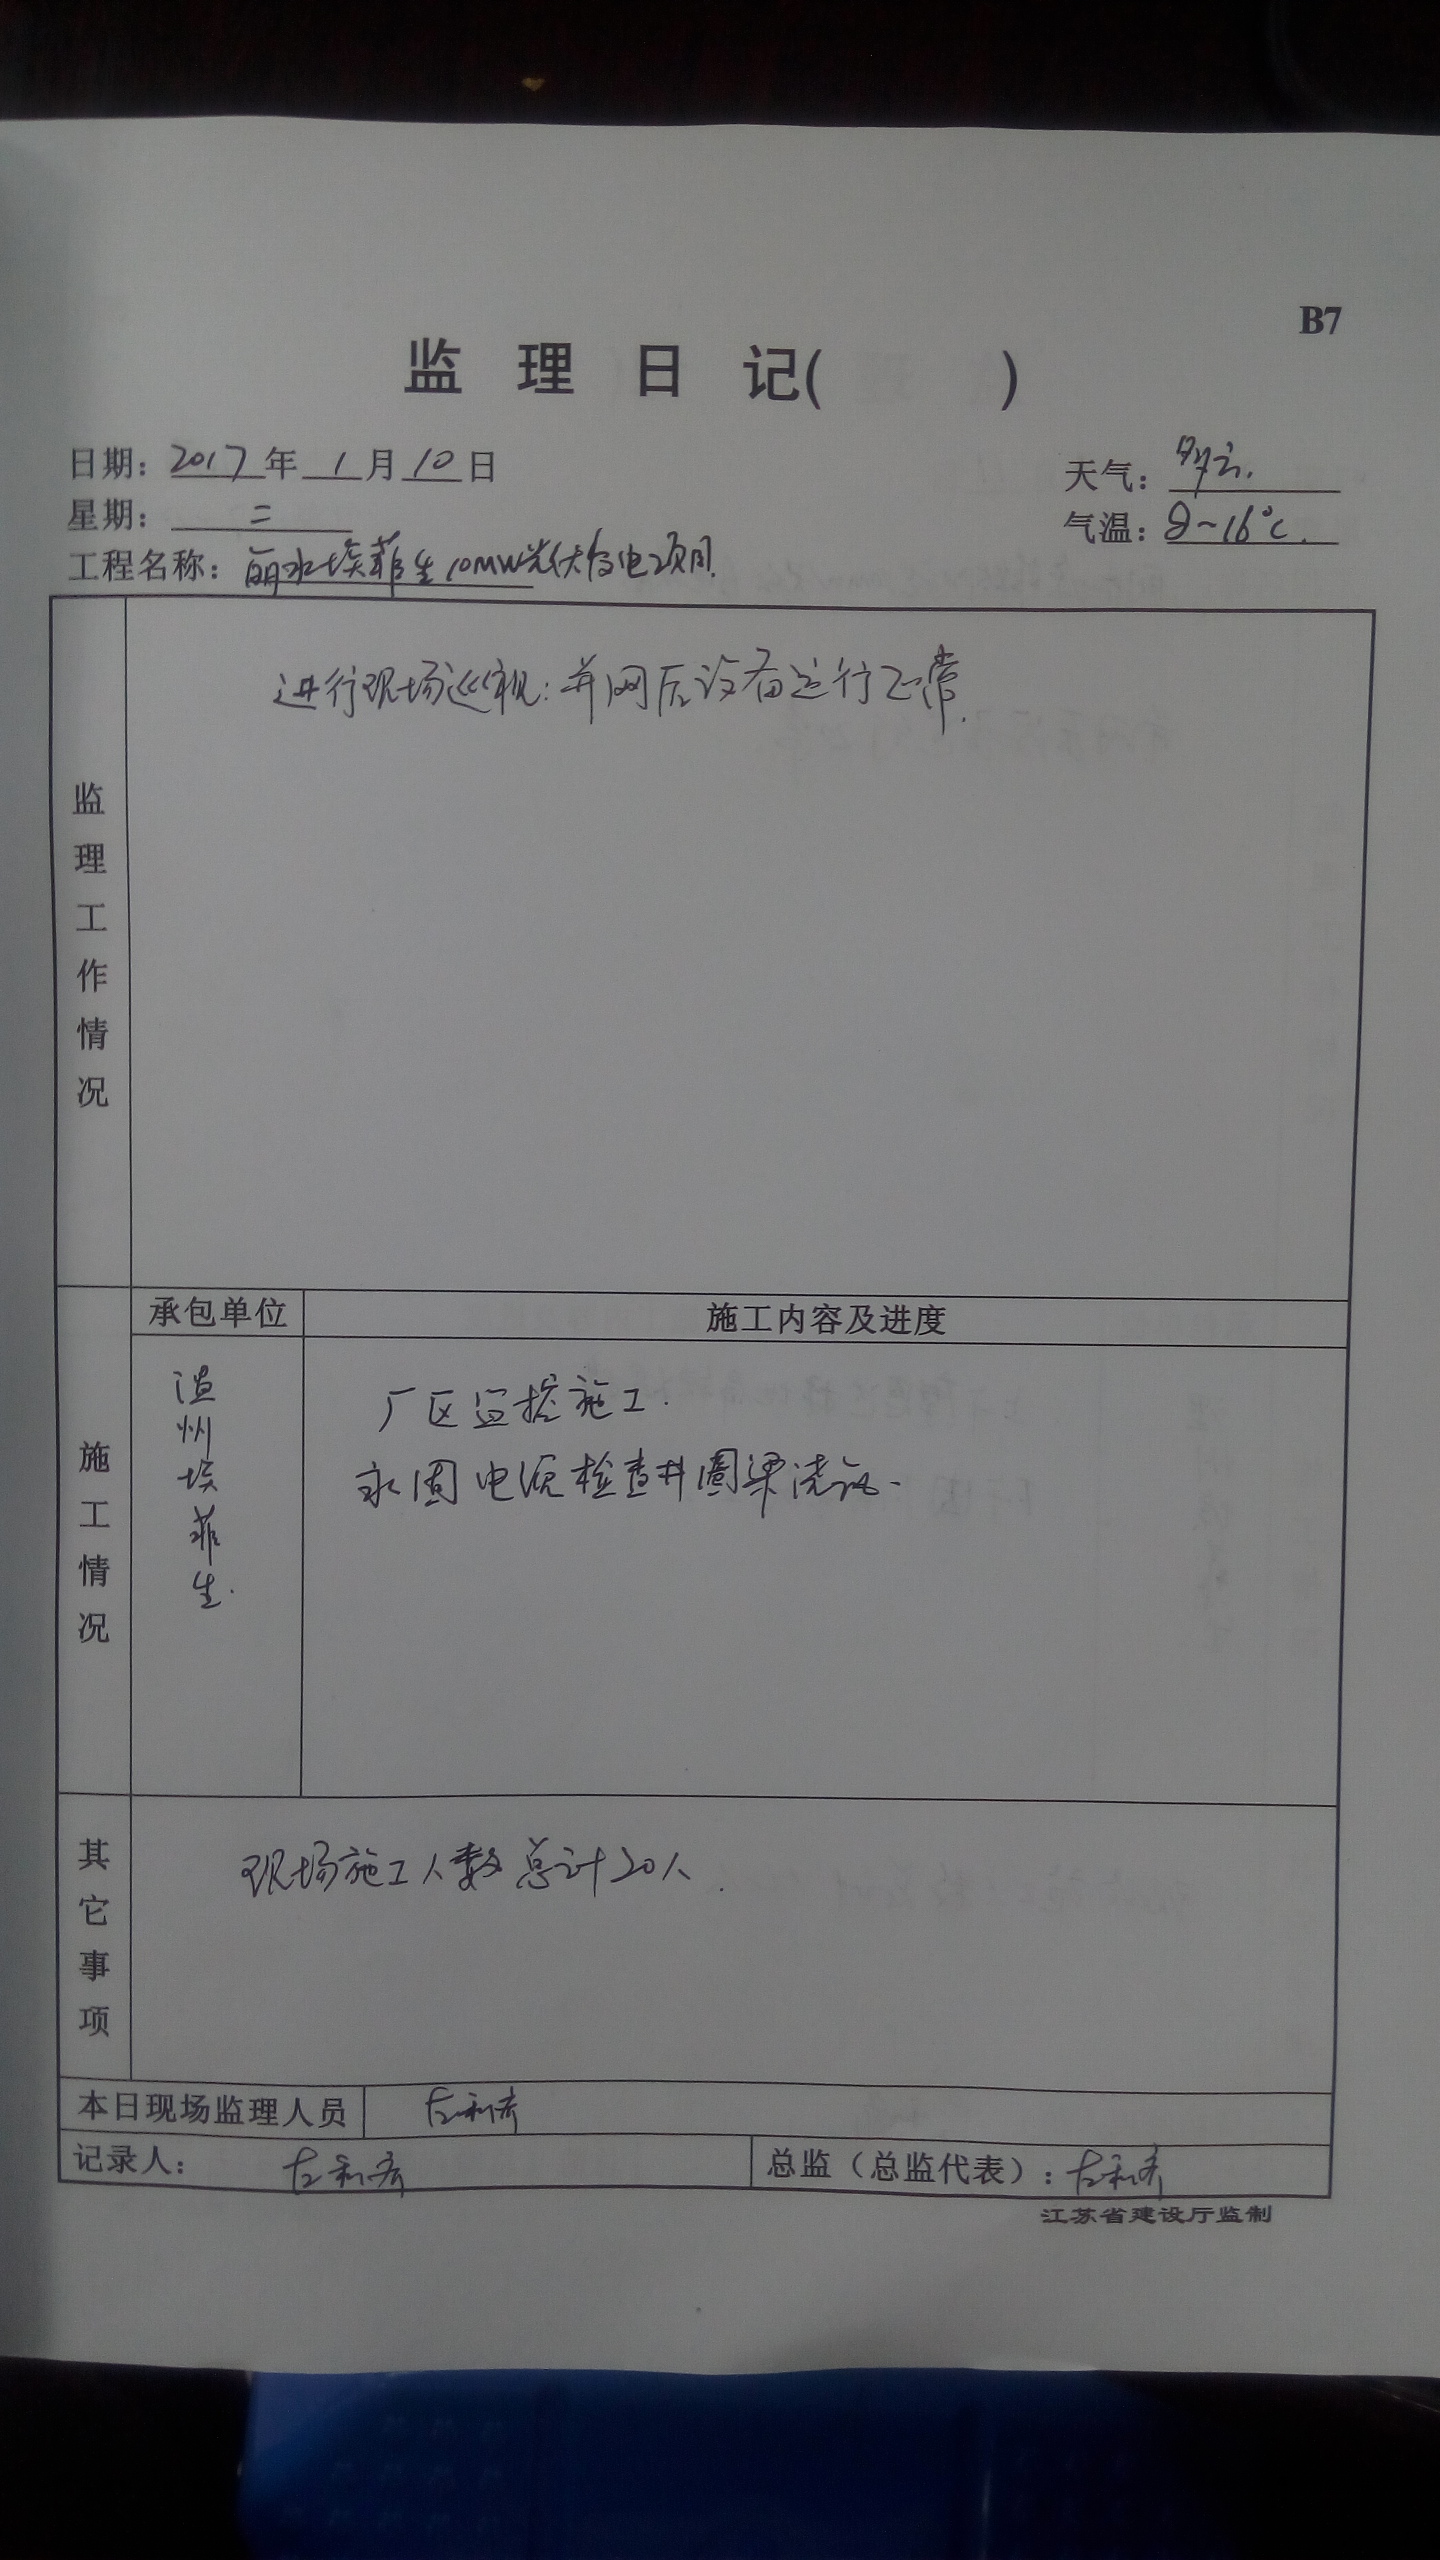 B7
监理日记( )
日期：2017年1月10日
天气：多云.
星期：二
气温：8~16℃.
工程名称：丽水埃菲生10MW光伏发电项目.
监理工作情况
进行现场巡视：并网后设备运行正常.
施工情况
承包单位
施工内容及进度
温州埃菲生.
厂区监控施工.
永固电源检查井圈梁浇筑.
其它事项
现场施工人数总计20人.
本日现场监理人员
记录人：
总监（总监代表）：
江苏省建设厅监制